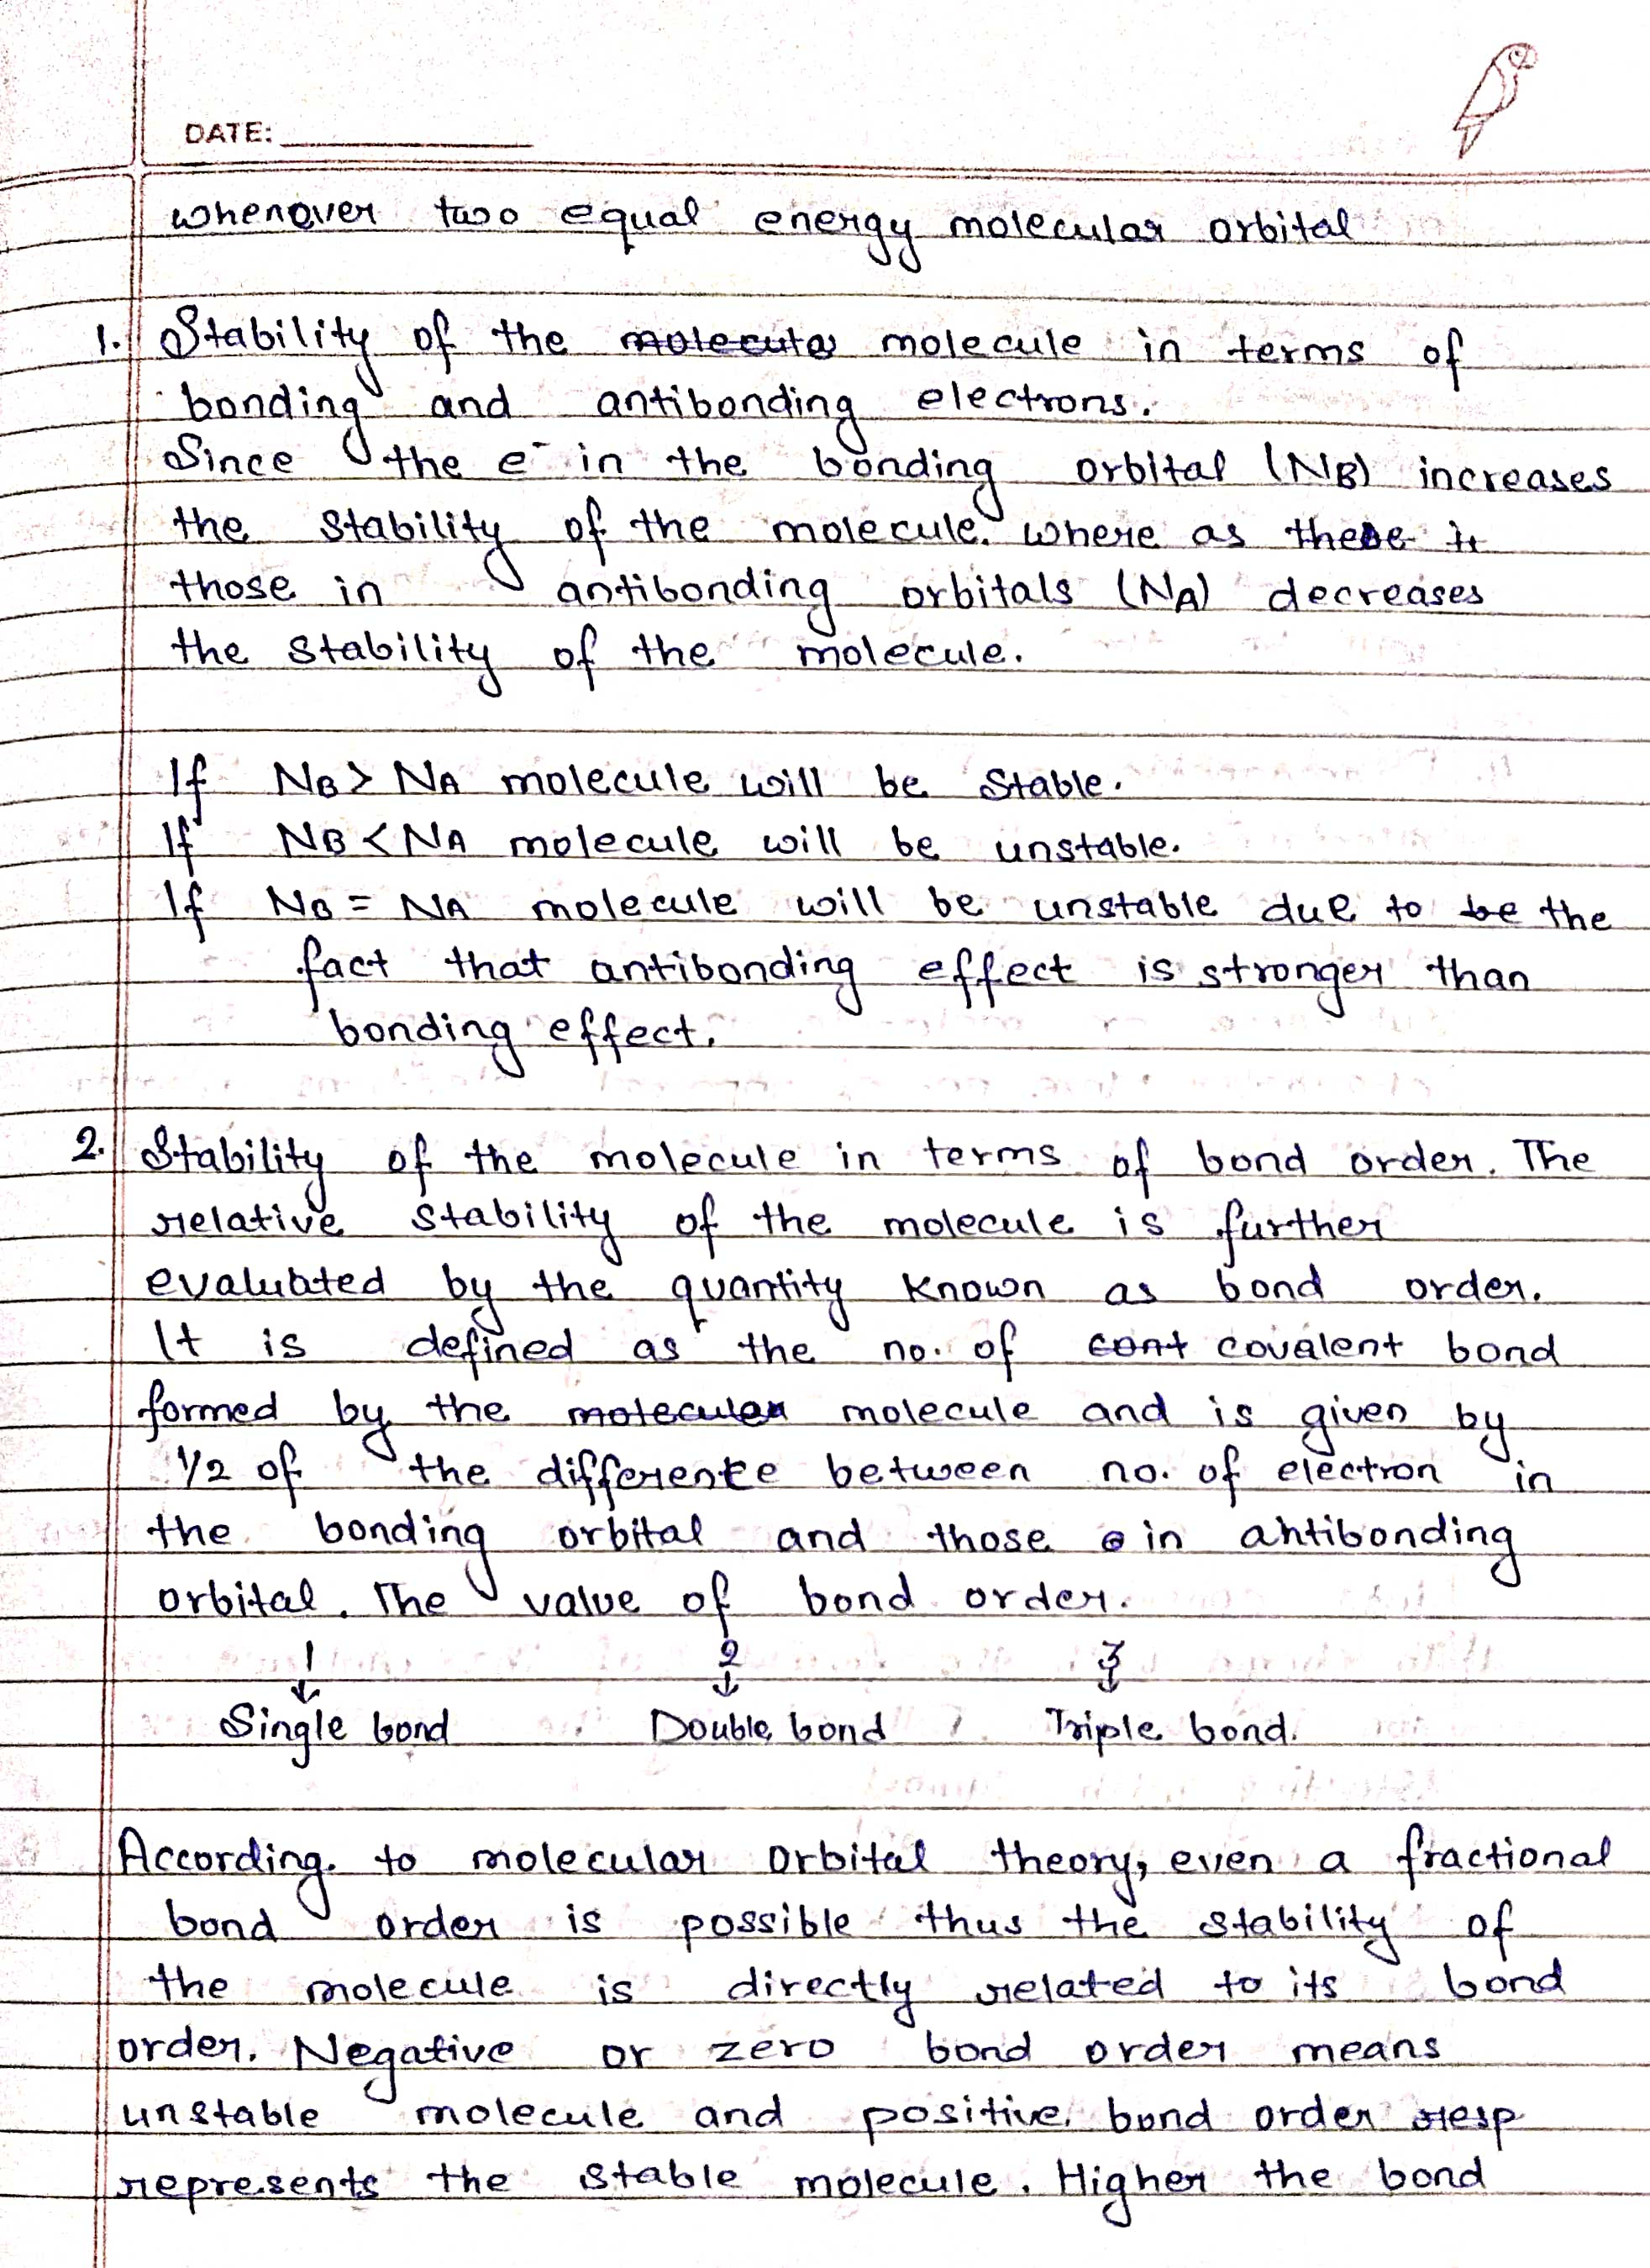 DATE:
whenever two equal energy molecular orbital
1. Stability of the molecule in terms of
bonding and antibonding electrons.
Since the e⁻ in the bonding orbital (NB) increases
the stability of the molecule. where as these
those in antibonding orbitals (NA) decreases
the stability of the molecule.
If NB > NA molecule will be stable.
If NB < NA molecule will be unstable.
If NB = NA molecule will be unstable due to be the
fact that antibonding effect is stronger than
bonding effect.
2. Stability of the molecule in terms of bond order. The
relative stability of the molecule is further
evaluated by the quantity known as bond order.
It is defined as the no. of cont covalent bond
formed by the molecular molecule and is given by
1/2 of the difference between no. of electron in
the bonding orbital and those in antibonding
orbital. The value of bond order.
1 2 3
↓ ↓ ↓
Single bond Double bond Triple bond.
According to molecular orbital theory, even a fractional
bond order is possible thus the stability of
the molecule is directly related to its bond
order. Negative or zero bond order means
unstable molecule and positive bond order resp
represents the stable molecule. Higher the bond